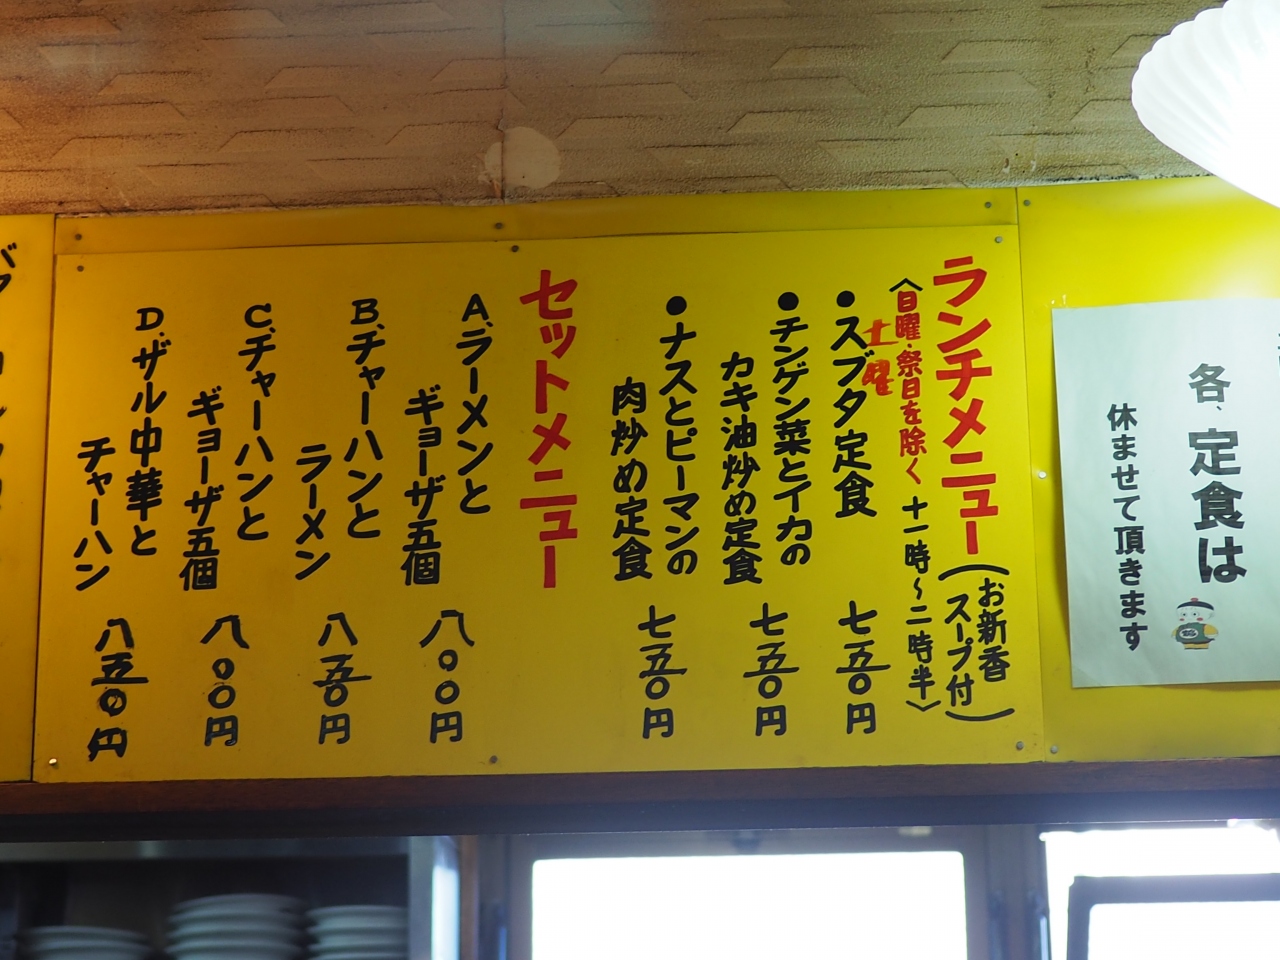 各、定食は
休ませて頂きます
ランチメニュー(お新香
スープ付)
〈日曜・祭日を除く 十一時～二時半〉
土曜
●スブタ定食 七五〇円
●チンゲン菜とイカの
カキ油炒め定食 七五〇円
●ナスとピーマンの
肉炒め定食 七五〇円
セットメニュー
A.ラーメンと
ギョーザ五個 八〇〇円
B.チャーハンと
ラーメン 八五〇円
C.チャーハンと
ギョーザ五個 八〇〇円
D.ザル中華と
チャーハン 八五〇円